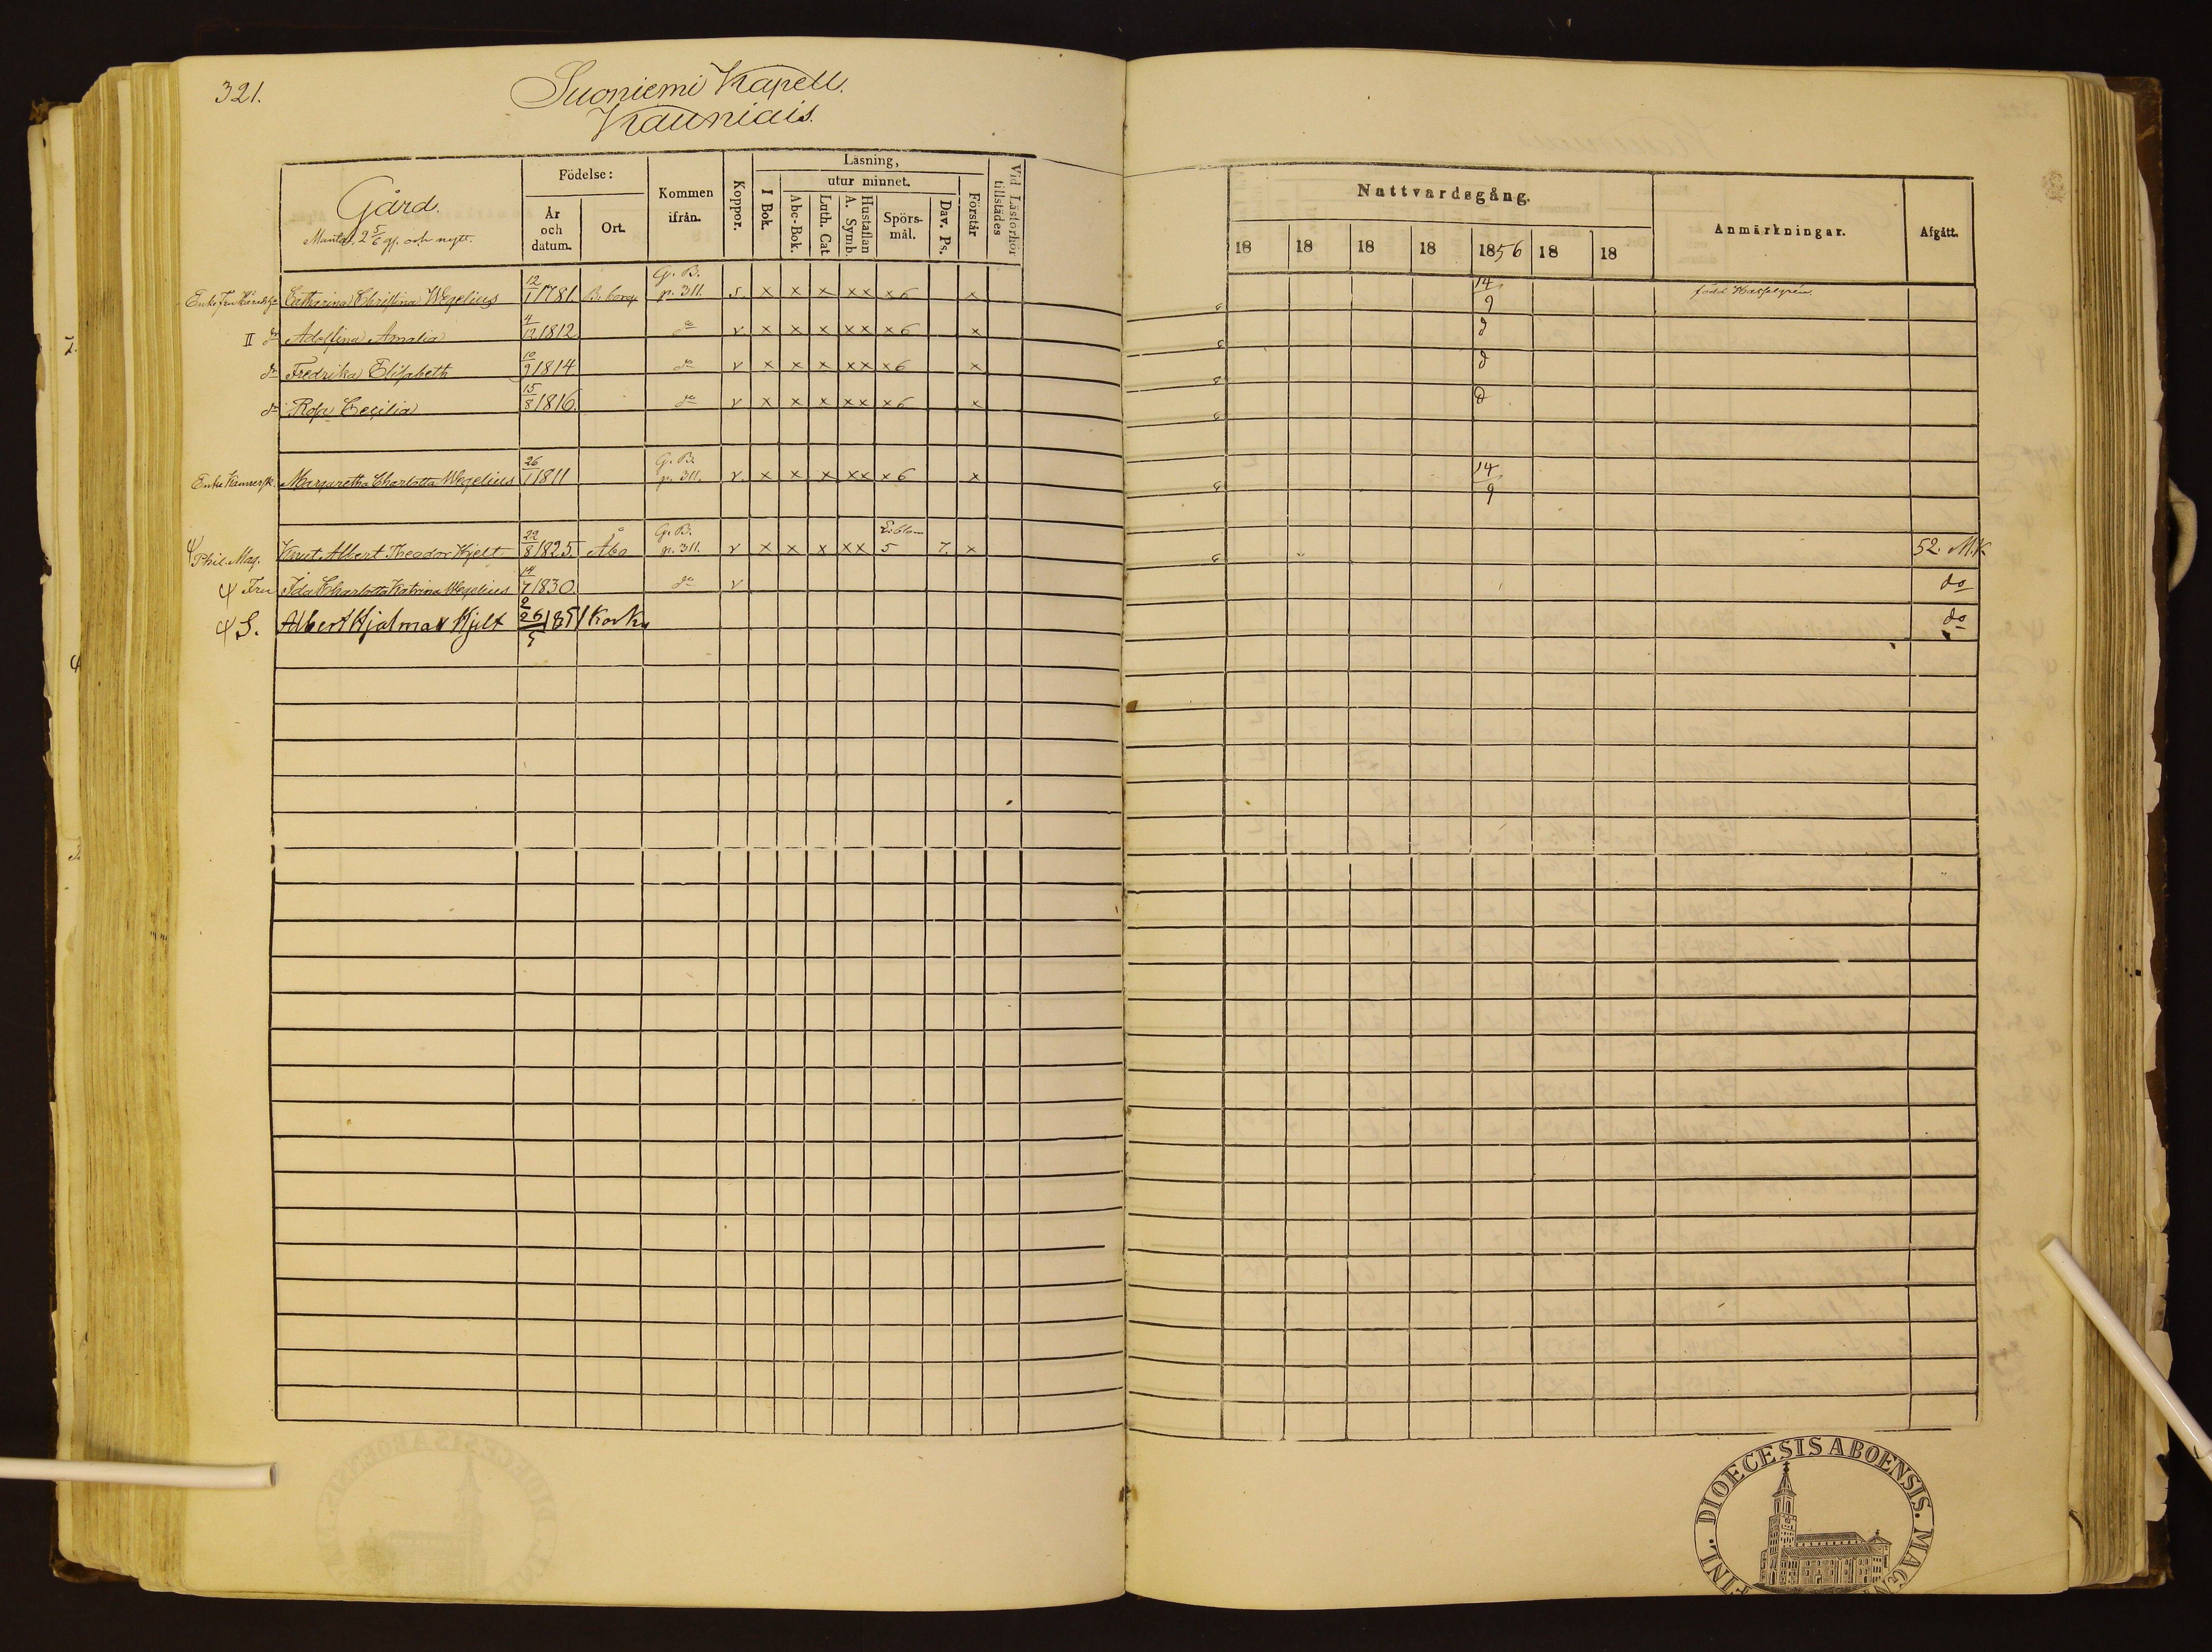 321.
Suoniemi Kapell.
Kauniais.
Gård.
Mantal. 2 5/6 gl. och nytt.
Födelse:
År och datum.
Ort.
Kommen ifrån.
Koppor.
Läsning,
utur minnet.
I Bok.
Abc-Bok.
Luth. Cat
Hustaflan A. Symb.
Spörs-mål.
Dav. Ps.
Förstår
Vid Läsförhör tillstädes
Nattvardsgång.
18 18 18 18 1856 18 18
Anmärkningar.
Afgått.
Enke Catharina Christina Wegelius 12/1 1781. G. B. p. 311. x x x xx x6 x 14/9 född
II do Adolfina Amalia 4/12 1812 do v. x x x xx x6 x d
do Fredrika Elisabeth 10/9 1814 do v x x x xx x6 x d
do Rosa Cecilia 15/8 1816. do v x x x xx x6 x d
Enke Margaretha Charlotta Wegelius 26/1 1811 G. B. p. 311. v. x x x xx x6 x 14/9
Phil. Mag. Knut Albert Theodor Hjelt 22/8 1825. Åbo G. B. p. 311. v x x x xx 5 7. x 52. M.K.
Fru Ida Charlotta Katrina Wegelius 14/7 1830. do v do
S. Albert Hjalmar Hjelt 26/5 1851 Karku do
DIOECESIS ABOENSIS. MAGN
FINL.